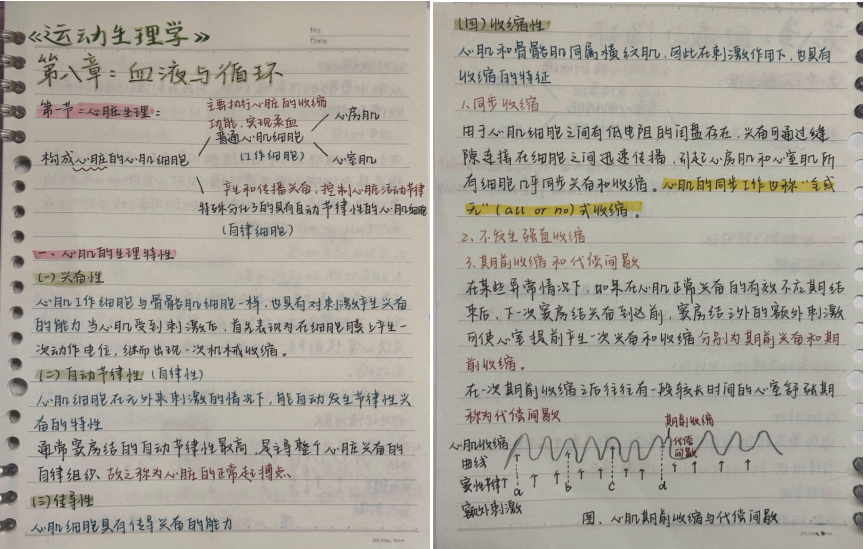 《运动生理学》
No.
Date
第八章：血液与循环
第一节：心脏生理：
主要执行心脏的收缩
功能，实现泵血
心房肌
普通心肌细胞
(工作细胞)
心室肌
构成心脏的心肌细胞
产生和传播兴奋，控制心脏活动节律
特殊分化了的具有自动节律性的心肌细胞
(自律细胞)
一、心肌的生理特性
(一)兴奋性
心肌工作细胞与骨骼肌细胞一样，也具有对刺激产生兴奋
的能力 当心肌受到刺激后，首先表现为在细胞膜上产生一
次动作电位，继而出现一次机械收缩。
(二)自动节律性(自律性)
心肌细胞在无外来刺激的情况下，能自动发生节律性兴
奋的特性
通常窦房结的自动节律性最高，是主导整个心脏兴奋的
自律组织，故称之为心脏的正常起搏点、
(三)传导性
心肌细胞具有传导兴奋的能力
(四)收缩性
心肌和骨骼肌同属横纹肌，因此在刺激作用下，也具有
收缩的特征
1.同步收缩
由于心肌细胞之间有低电阻的闰盘存在，兴奋可通过缝
隙连接在细胞之间迅速传播，引起心房肌和心室肌所
有细胞几乎同步兴奋和收缩。心肌的同步工作也称"全或
无"(all or no)式收缩。
2.不发生强直收缩
3.期前收缩和代偿间歇
在某些异常情况下，如果在心肌正常兴奋的有效不应期结
束后，下一次窦房结兴奋到达前，窦房结之外的额外刺激
可使心室提前产生一次兴奋和收缩 分别为期前兴奋和期
前收缩。
在一次期前收缩之后往往有一段较长时间的心室舒张期
称为代偿间歇
期前收缩
心肌收缩
曲线
代偿
间歇
窦性节律
a b c d
额外刺激
图、心肌期前收缩与代偿间歇